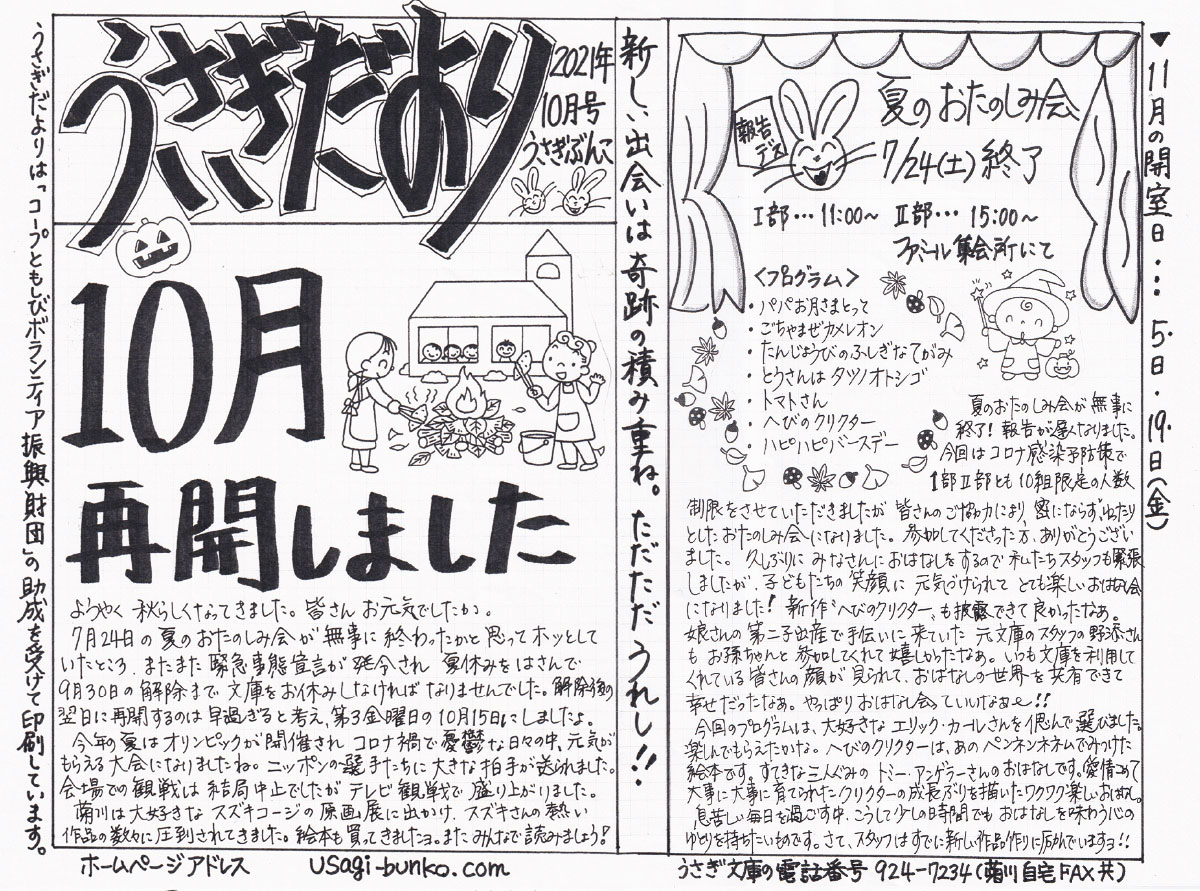 うさぎだより
2021年
10月号
うさぎぶんこ
10月
再開しました
ようやく 秋らしくなってきました。皆さん お元気でしたか。
7月24日の 夏のおたのしみ会が 無事に 終わったかと 思って ホッとして
いたところ、またまた 緊急事態宣言が 発令され 夏休みを はさんで
9月30日の 解除まで 文庫を お休みしなければ なりませんでした。解除後の
翌日に再開するのは 早過ぎると 考え、第3金曜日の10月15日にしましたよ。
今年の夏は オリンピックが 開催され コロナ禍で 憂鬱な日々の中、元気が
もらえる 大会になりましたね。ニッポンの選手たちに 大きな拍手が 送られました。
会場での 観戦は 結局 中止でしたが テレビ観戦で 盛り上がりました。
菊川は 大好きな スズキコージの 原画展に 出かけ、スズキさんの 熱い
作品の数々に 圧到されてきました。絵本も 買ってきましたヨ。また みんなで 読みましょう!
ホームページアドレス usagi-bunko.com
うさぎだよりは「コープともしびボランティア振興財団」の助成を受けて印刷しています。
新しい出会いは奇跡の積み重ね。ただただうれし!!
報告デス
夏のおたのしみ会
7/24(土)終了
Ⅰ部… 11:00〜 Ⅱ部… 15:00〜
ファミール集会所にて
<プログラム>
・パパお月さまとって
・ごちゃまぜカメレオン
・たんじょうびのふしぎなてがみ
・とうさんは タツノオトシゴ
・トマトさん
・へびのクリクター
・ハピハピバースデー
夏のおたのしみ会が 無事に
終了! 報告が遅くなりました。
今回は コロナ感染予防策で
1部Ⅱ部とも 10組限定の人数
制限をさせていただきましたが 皆さんのご協力により 密にならず、ゆったり
としたおたのしみ会になりました。参加してくださった方、ありがとうござい
ました。久しぶりに みなさんに おはなしをするので 私たちスタッフも 緊張
しましたが、子どもたちの 笑顔に 元気づけられて とても楽しい おはなし会
になりました! 新作“へびのクリクター”も 披露できて良かったなあ。
娘さんの 第二子出産で 手伝いに 来ていた 元文庫のスタッフの野添さん
も お孫ちゃんと 参加してくれて 嬉しかったなあ。いつも文庫を利用して
くれている 皆さんの 顔が 見られて、おはなしの世界を 共有できて
幸せだったなぁ。やっぱり おはなし会っていいなぁ〜!!
今回のプログラムは、大好きな エリック・カールさんを 偲んで 選びました。
楽しんでもらえたかな。へびのクリクターは、あの ペンネンネネムでみつけた
絵本です。すてきな三人ぐみの トミー・アンゲラーさんの おはなしです。愛情こめて
大事に大事に育てられたクリクターの成長ぶりを描いたワクワク楽しいおはなし。
息苦しい毎日を過ごす中、こうして少しの時間でも おはなしを味わう心の
ゆとりを持ちたいものです。さて、スタッフはすでに新しい作品作りに励んでいますョ!!
うさぎ文庫の電話番号 924-7234(菊川自宅FAX共)
▼11月の開室日… 5日・19日(金)